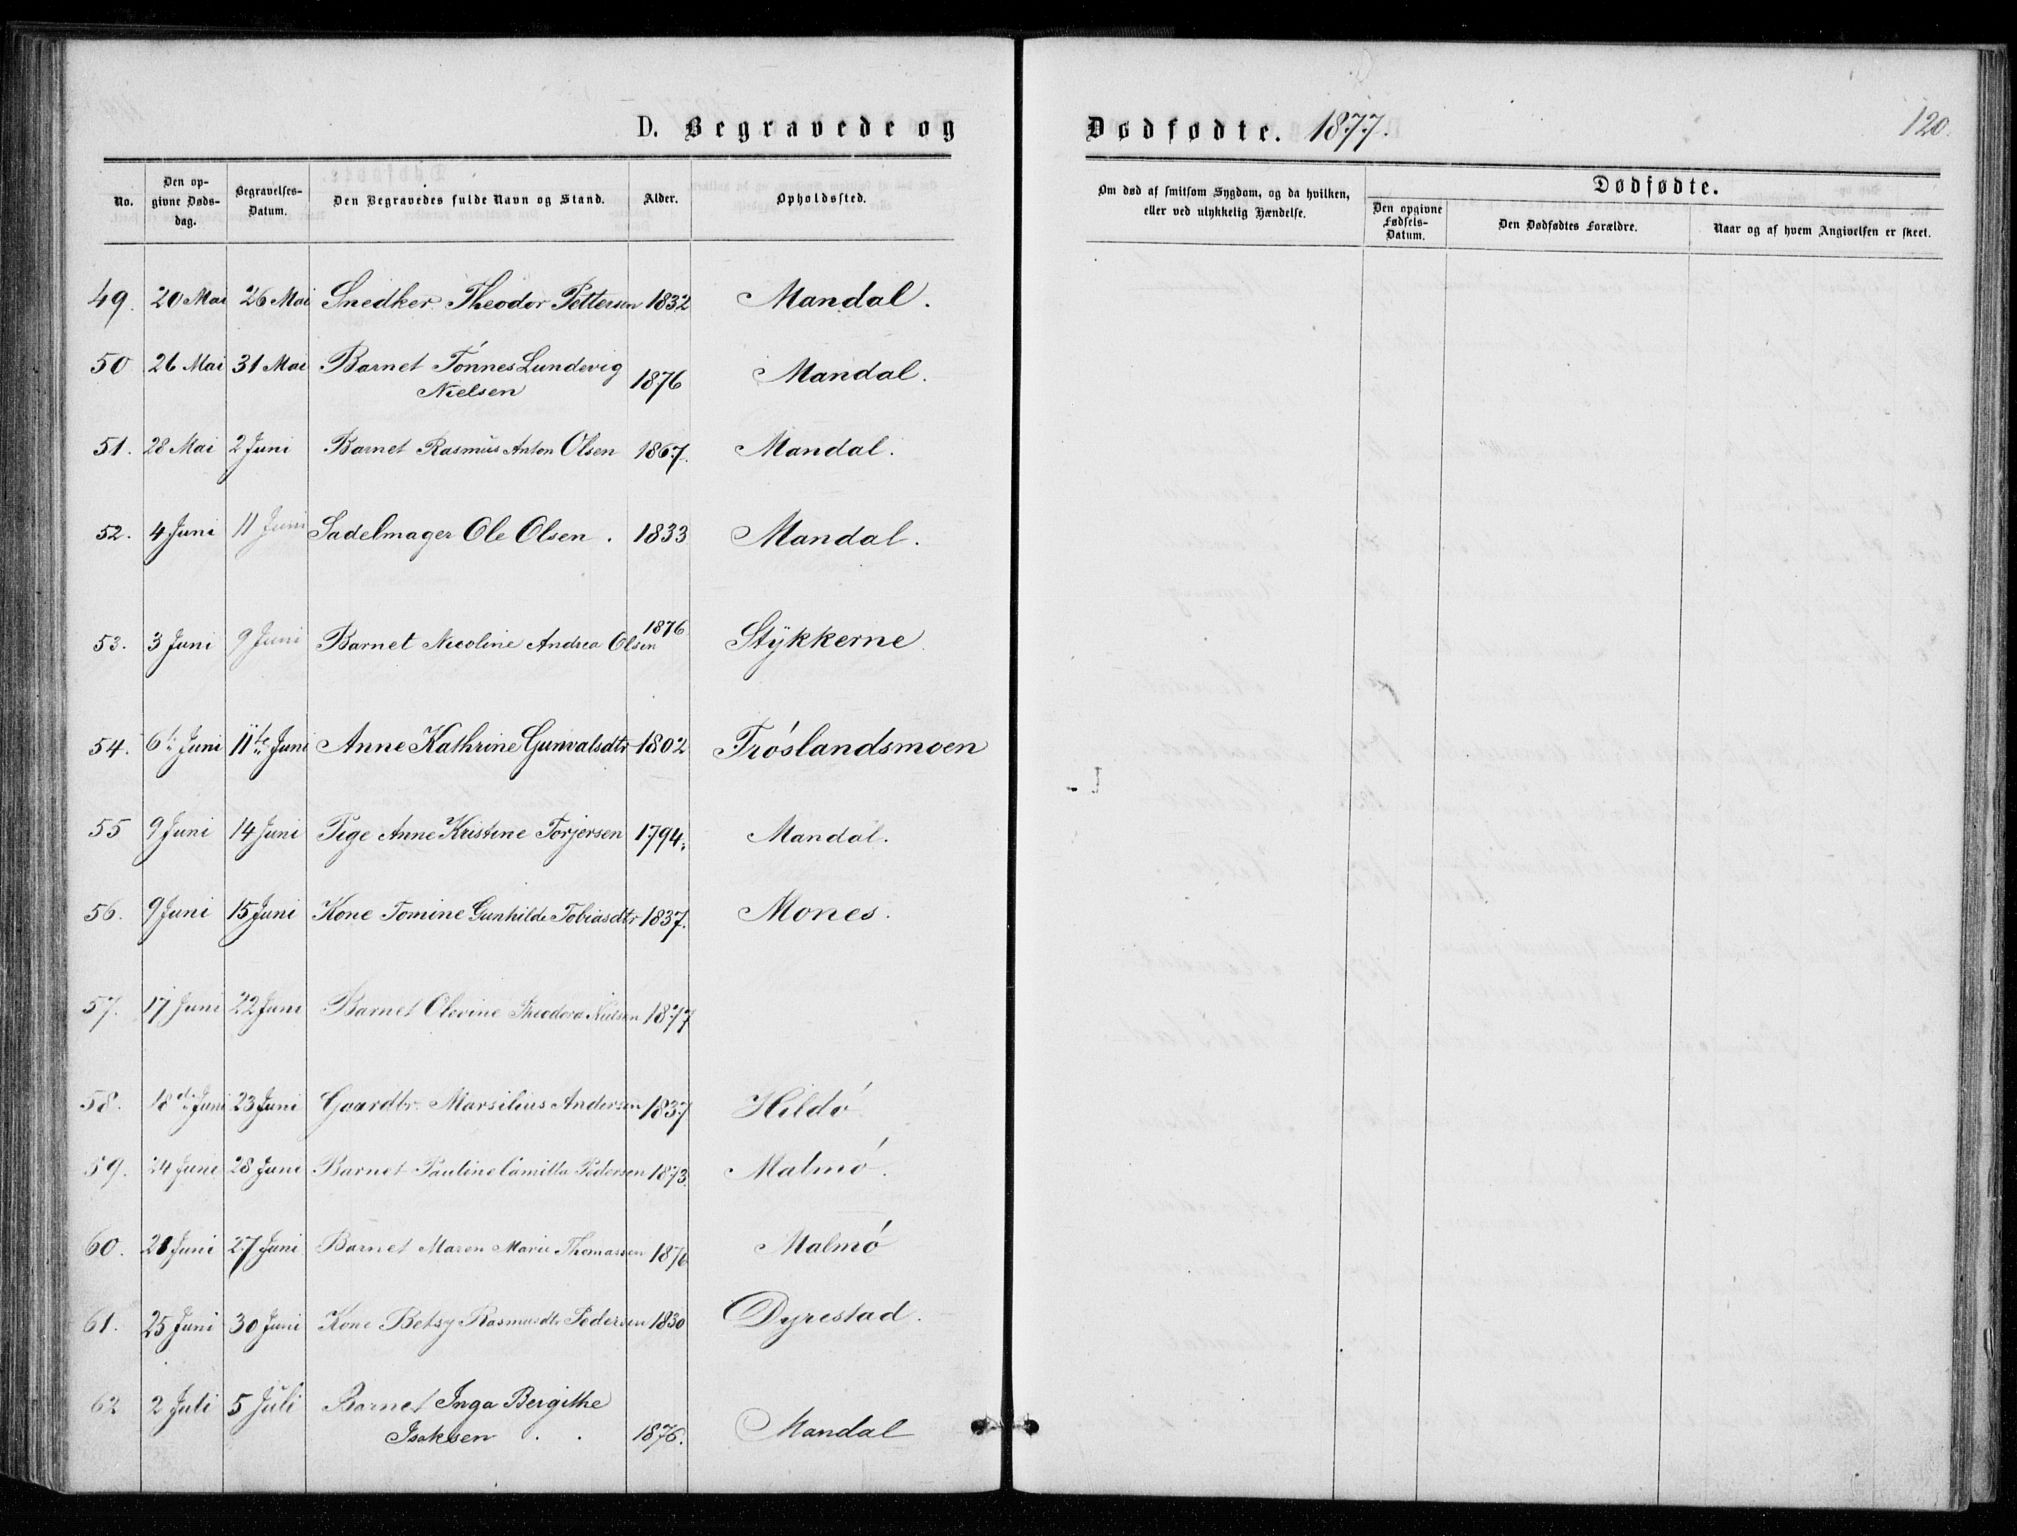 D. Begravede og Dødfødte. 1877. 120.
No. Den opgivne Dødsdag. Begravelses-Datum. Den Begravedes fulde Navn og Stand. Alder. Opholdssted. Om død af smitsom Sygdom, og da hvilken, eller ved ulykkelig Hændelse. Dødfødte. Den opgivne Fødsels-Datum. Den Dødfødtes Forældre. Naar og af hvem Angivelsen er skeet.
49. 20 Mai 26 Mai Snedker Theodor Pettersen 1832 Mandal.
50 26 Mai 31 Mai Barnet Tönnes Lundevig
Nielsen 1876 Mandal.
51. 28 Mai 2 Juni Barnet Rasmus Anton Olsen 1867. Mandal.
52. 4 Juni 11 Juni Sadelmager Ole Olsen . 1833 Mandal.
53. 3 Juni 9 Juni Barnet Nicoline Andrea Olsen 1876 Stykkerne.
54. 6te Juni 11te Juni Anne Kathrine Gunvalsdtr 1802 Tröslandsmoen
55 9 Juni 14 Juni Pige Anne Kristine Torjersen 1794. Mandal.
56. 9 Juni 15 Juni Kone Tomine Gunhilde Tobiasdtr 1837. Mones.
57. 17 Juni 22 Juni Barnet Olevine Theodora Nielsen 1877
58. 18de Juni 23 Juni Gaardbr. Marsilius Andersen 1837 Hildö
59. 24 Juni 28 Juni Barnet Pauline Camilla Pedersen 1873. Malmö.
60. 21 Juni 27 Juni Barnet Maren Marie Thomassen 1876 Malmö
61. 25 Juni 30 Juni Kone Betsy Rasmusdtr Pedersen 1830 Dyrestad.
62 2 Juli 5 Juli Barnet Inga Bergithe
Isaksen . . 1876. Mandal